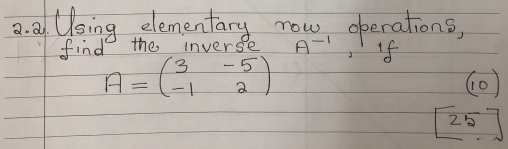 2.2. Using elementary row operations,
find the inverse A⁻¹, if
A = (3 -5
-1 2) (10)
[25]